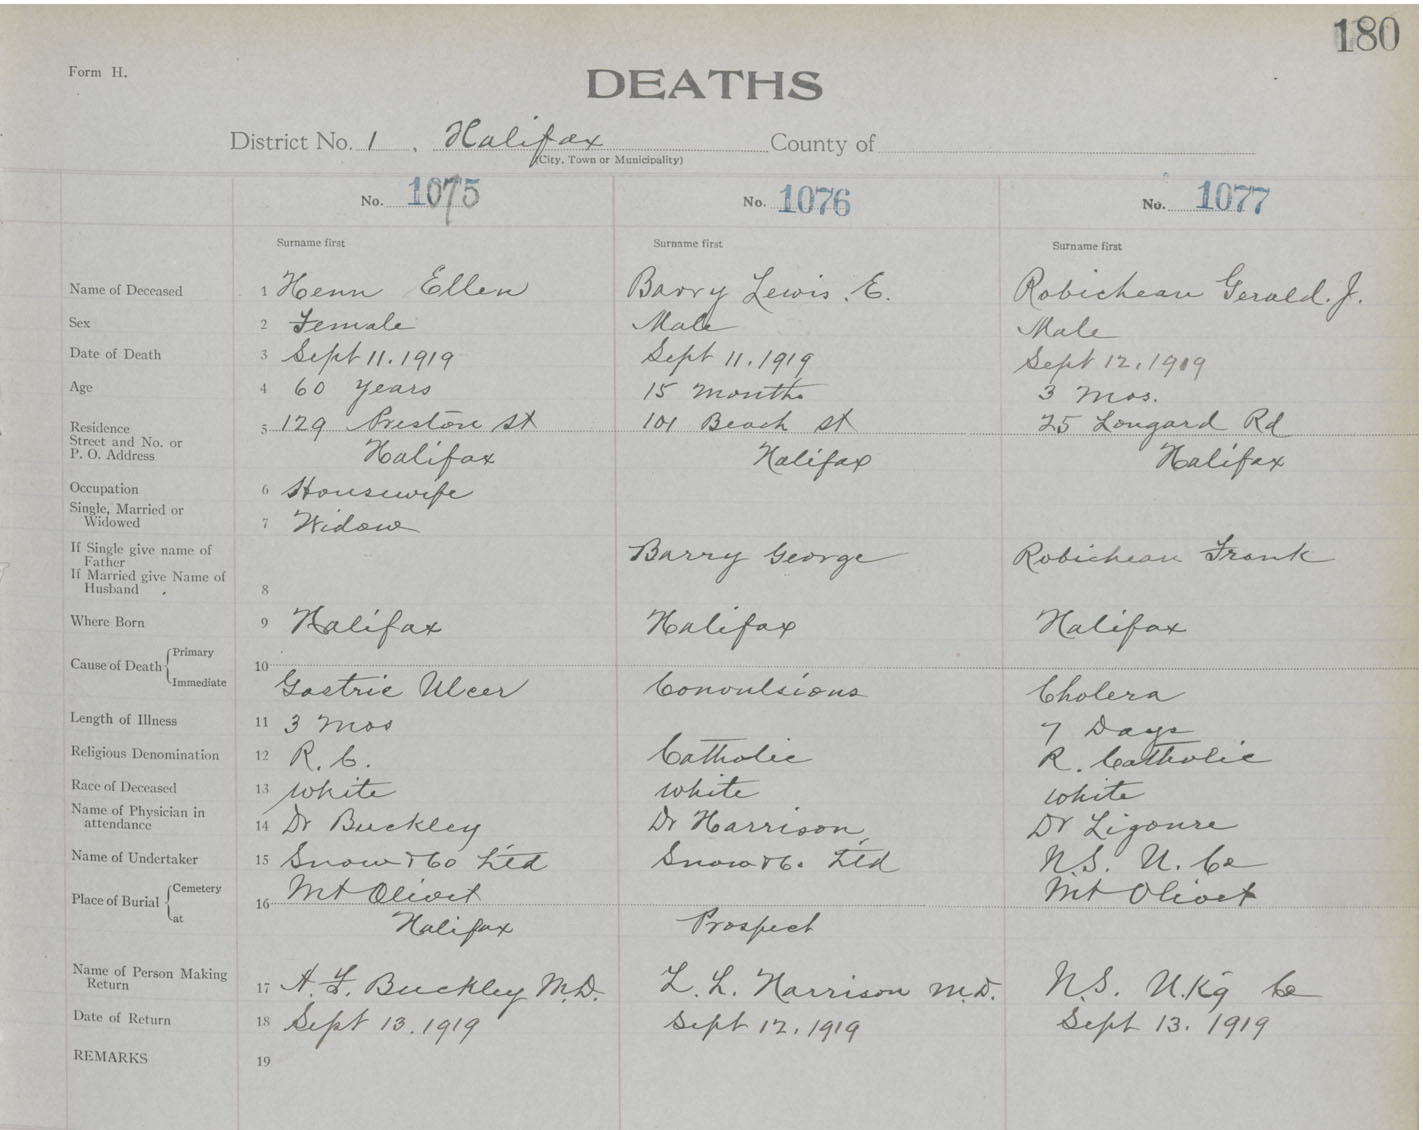 180
Form H.
DEATHS
District No. 1. Halifax County of
(City, Town or Municipality)
No. 1075 No. 1076 No. 1077
Surname first Surname first Surname first
Name of Deceased 1 Henn Ellen Barry Lewis. E. Robicheau Gerald. J.
Sex 2 Female Male Male
Date of Death 3 Sept 11. 1919 Sept 11. 1919 Sept 12. 1919
Age 4 60 years 15 months 3 mos.
Residence 5 129 Preston St 101 Beach St 25 Longard Rd
Street and No. or
P. O. Address Halifax Halifax Halifax
Occupation 6 Housewife
Single, Married or
Widowed 7 Widow
If Single give name of
Father Barry George Robicheau Frank
If Married give Name of
Husband 8
Where Born 9 Halifax Halifax Halifax
Cause of Death Primary 10
Immediate Gastric Ulcer Convulsions Cholera
Length of Illness 11 3 mos 7 Days
Religious Denomination 12 R. C. Catholic R. Catholic
Race of Deceased 13 white white white
Name of Physician in
attendance 14 Dr Buckley Dr Harrison Dr Ligoure
Name of Undertaker 15 Snow & Co Ltd Snow & Co. Ltd N.S. U. Co
Place of Burial Cemetery 16 Mt Olivet Mt Olivet
at Halifax Prospect
Name of Person Making
Return 17 A. F. Buckley M.D. L. L. Harrison M.D. N.S. U.Kg Co
Date of Return 18 Sept 13. 1919 Sept 12. 1919 Sept 13. 1919
REMARKS 19